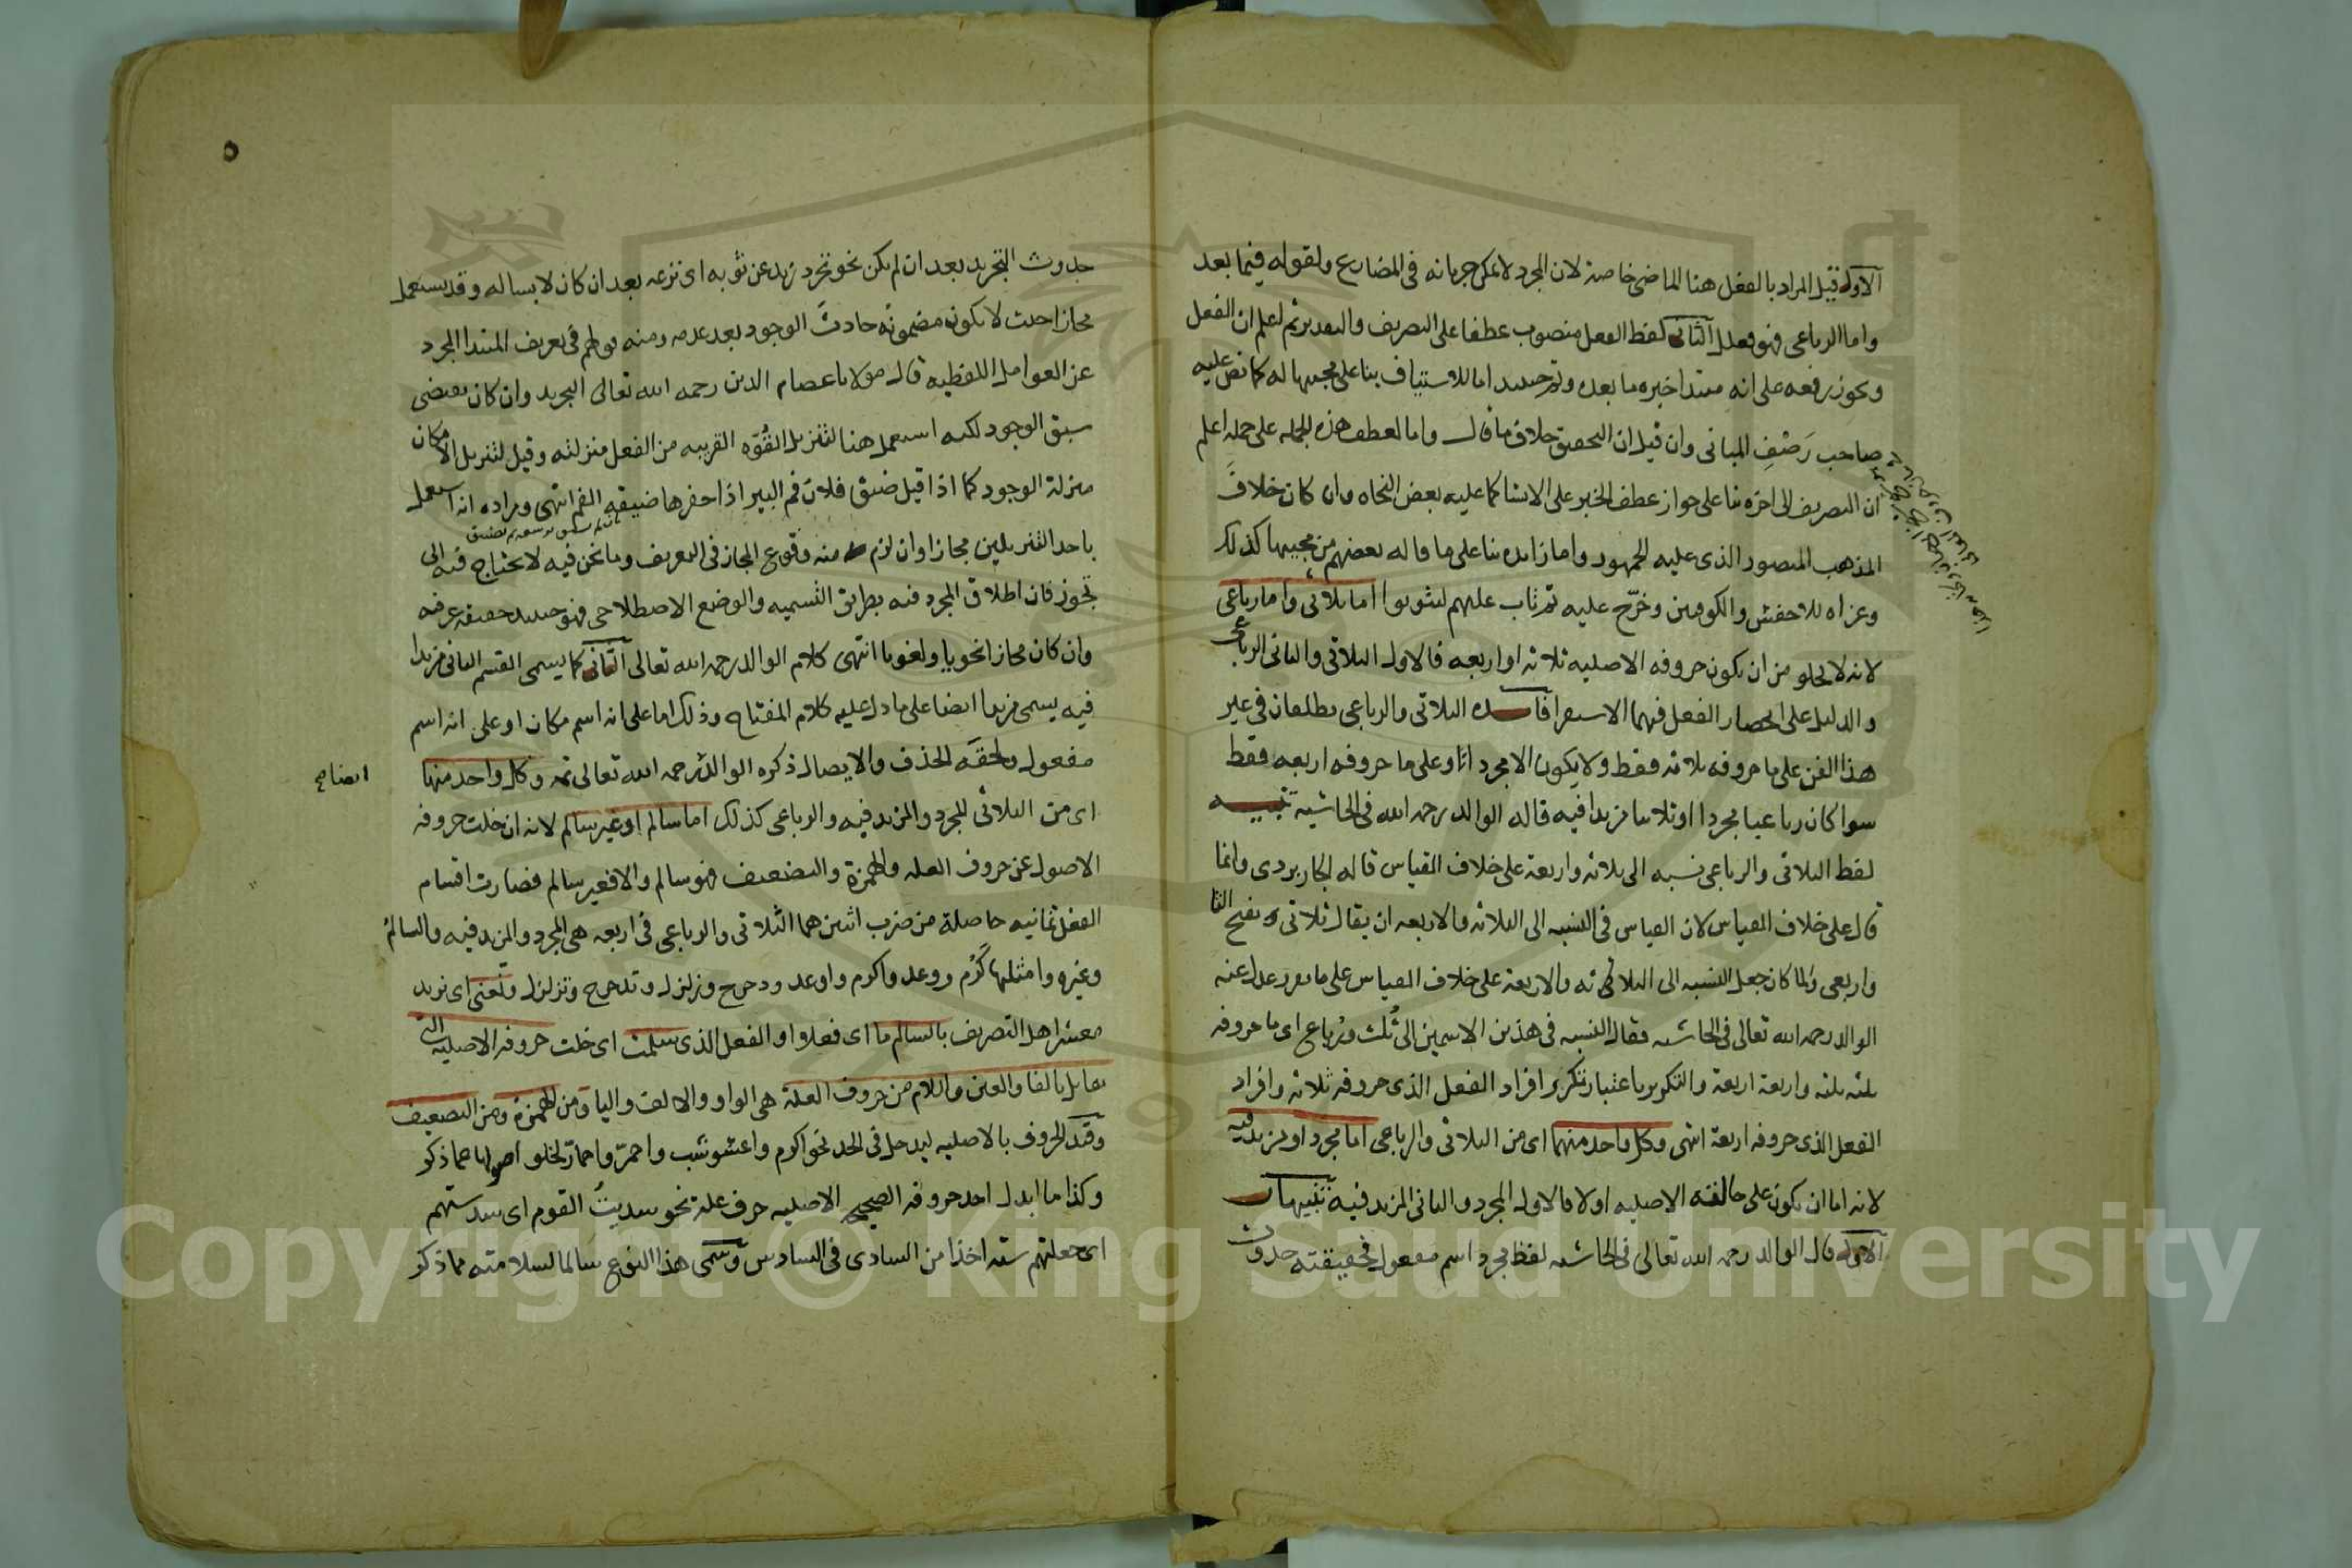 الاول قيل المراد بالفعل هنا الماضى خاصة لان المجرد لا يمكن جريانه فى المضارع ولقوله فيما بعد
واما الرباعى فهو فعلل الثانى لفظ الفعل منصوب عطفا على التصريف والتقدير ثم لتعلم ان الفعل
ويجوز رفعه على انه مبتدا خبره ما بعده وثم حينئذ اما للاستيناف بنا على مجيها له كما نص عليه
صاحب رَصْفِ المبانى وان قيل ان التحقيق خلاف ما قال واما لعطف هذه الجملة على جملة اعلم
ان التصريف الى اخره بنا على جواز عطف الخبر على الانشا كما عليه بعض النحاه وان كان خلافَ
المذهب المنصور الذى عليه الجمهور واما زايده بنا على ما قاله بعضهم من مجيها كذلك
وعزاه للاخفش والكوفيين وخرّج عليه ثم تاب عليهم ليتوبوا اما ثلاثى واما رباعى
لانه لا يخلو من ان يكون حروفه الاصليه ثلاثه او اربعه فالاول الثلاثى والثانى الرباعى
والدليل على انحصار الفعل فيهما الاستقرا فايده الثلاثى والرباعى يطلقان فى غير
هذا الفن على ما حروفه ثلاثه فقط ولا يكون الا مجردا او على ما حروفه اربعه فقط
سوا كان رباعيا مجردا او ثلاثيا مزيدا فيه قاله الوالد رحمه الله فى الحاشيه تنبيه
لفظ الثلاثى والرباعى نسبه الى ثلاثه واربعة على خلاف القياس قاله الجاربردى وانما
قال على خلاف القياس لان القياس فى النسبه الى الثلاثه والاربعه ان يقال ثلاثى بفتح الثا
واربعى ولما كان جعل النسبه الى الثلاثه والاربعة على خلاف القياس على ما تقرر عدل عنه
الوالد رحمه الله تعالى فى الحاشيه فقال النسبه فى هذين الاسمين الى ثُلث ورُباع اى ما حروفه
ثلثه ثلثه واربعة اربعة والتكرير باعتبار تكرير افراد الفعل الذى حروفه ثلاثه وافراد
الفعل الذى حروفه اربعة انتهى وكل واحد منهما اى من الثلاثى والرباعى اما مجرد او مزيد فيه
لانه اما ان يكون على حالته الاصليه او لا فالاول المجرد والثانى المزيد فيه تنبيهات
الاول قال الوالد رحمه الله تعالى فى الحاشيه لفظ مجرد اسم مفعول فحقيقته حدوث
٥
حدوث التجريد بعد ان لم يكن نحو تجرد زيد عن ثوبه اى نزعه بعد ان كان لابسا له وقد يستعمل
مجازا حيث لا يكون مضمونُه حادثَ الوجود بعد عدمه ومنه قولهم فى تعريف المبتدا المجرد
عن العوامل اللفظيه قال مولانا عصام الدين رحمه الله تعالى التجريد وان كان يقتضى
سبق الوجود لكنه استعمل هنا لتنزيل القُوّه القريبه من الفعل منزلته وقيل لتنزيل الامكان
منزلة الوجود كما اذا قيل ضيق فلان فم البير اذا حفرها ضيقة الفم انتهى ومراده انه استعمل
باحد التنزيلين مجازا وان لزم منه وقوع المجاز فى التعريف وما نحن فيه لا يحتاج فيه الى
تجوز فان اطلاق المجرد فيه بطريق التسميه والوضع الاصطلاحى فهو حينئذ حقيقه عرفيه
وان كان مجازا نحويا ولغويا انتهى كلام الوالد رحمه الله تعالى الثانى كما يسمى القسم الثانى مزيدا
فيه يسمى مزيدا ايضا على ما دل عليه كلام المفتاح وذلك اما على انه اسم مكان او على انه اسم
مفعول ولحقه الحذف والايصال ذكره الوالد رحمه الله تعالى ثمه وكل واحد منها
ايضا صح
اى من الثلاثى المجرد والمزيد فيه والرباعى كذلك اما سالم او غير سالم لانه ان خلت حروفه
الاصول عن حروف العله والهمزة والتضعيف فهو سالم والا فغير سالم فصارت اقسام
الفعل ثمانيه حاصلة من ضرب اثنين هما الثلاثى والرباعى فى اربعه هى المجرد والمزيد فيه والسالم
وغيره وامثلها كَرُم ووعد واكرم واوعد ودحرج وزلزل وتدحرج وتزلزل ونعنى اى نريد
معشر اهل التصريف بالسالم ما اى فعلا او الفعل الذى سلمت اى خلت حروفه الاصليه التى
تقابل بالفا والعين واللام من حروف العلة هى الواو والالف واليا ومن الهمزة ومن التضعيف
وقيّد الحروف بالاصليه ليدخل فى الحد نحو اكرم واعشوشب واحمرّ واحمارّ لخلو اصولها عما ذكر
وكذا ما ابدل احد حروفه الصحيحه الاصليه حرف علة نحو سديتُ القوم اى سدستهم
اى جعلتهم سته اخذا من السادى فى السادس وسمى هذا النوع سالما لسلامته مما ذكر
Copyright © King Saud University